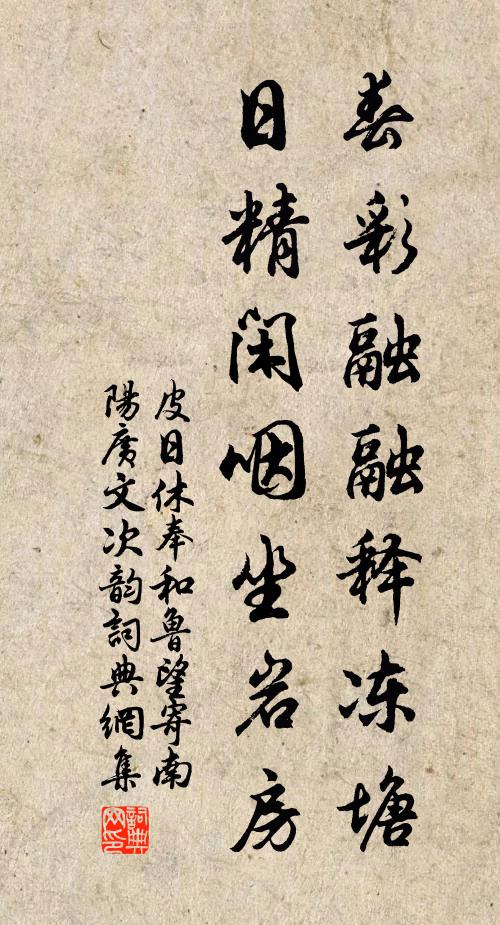 春彩融融释冻塘
日精閑咽坐岩房
皮日休奉和魯望寄南
陽廣文次韵詞典網集
詞典
网印